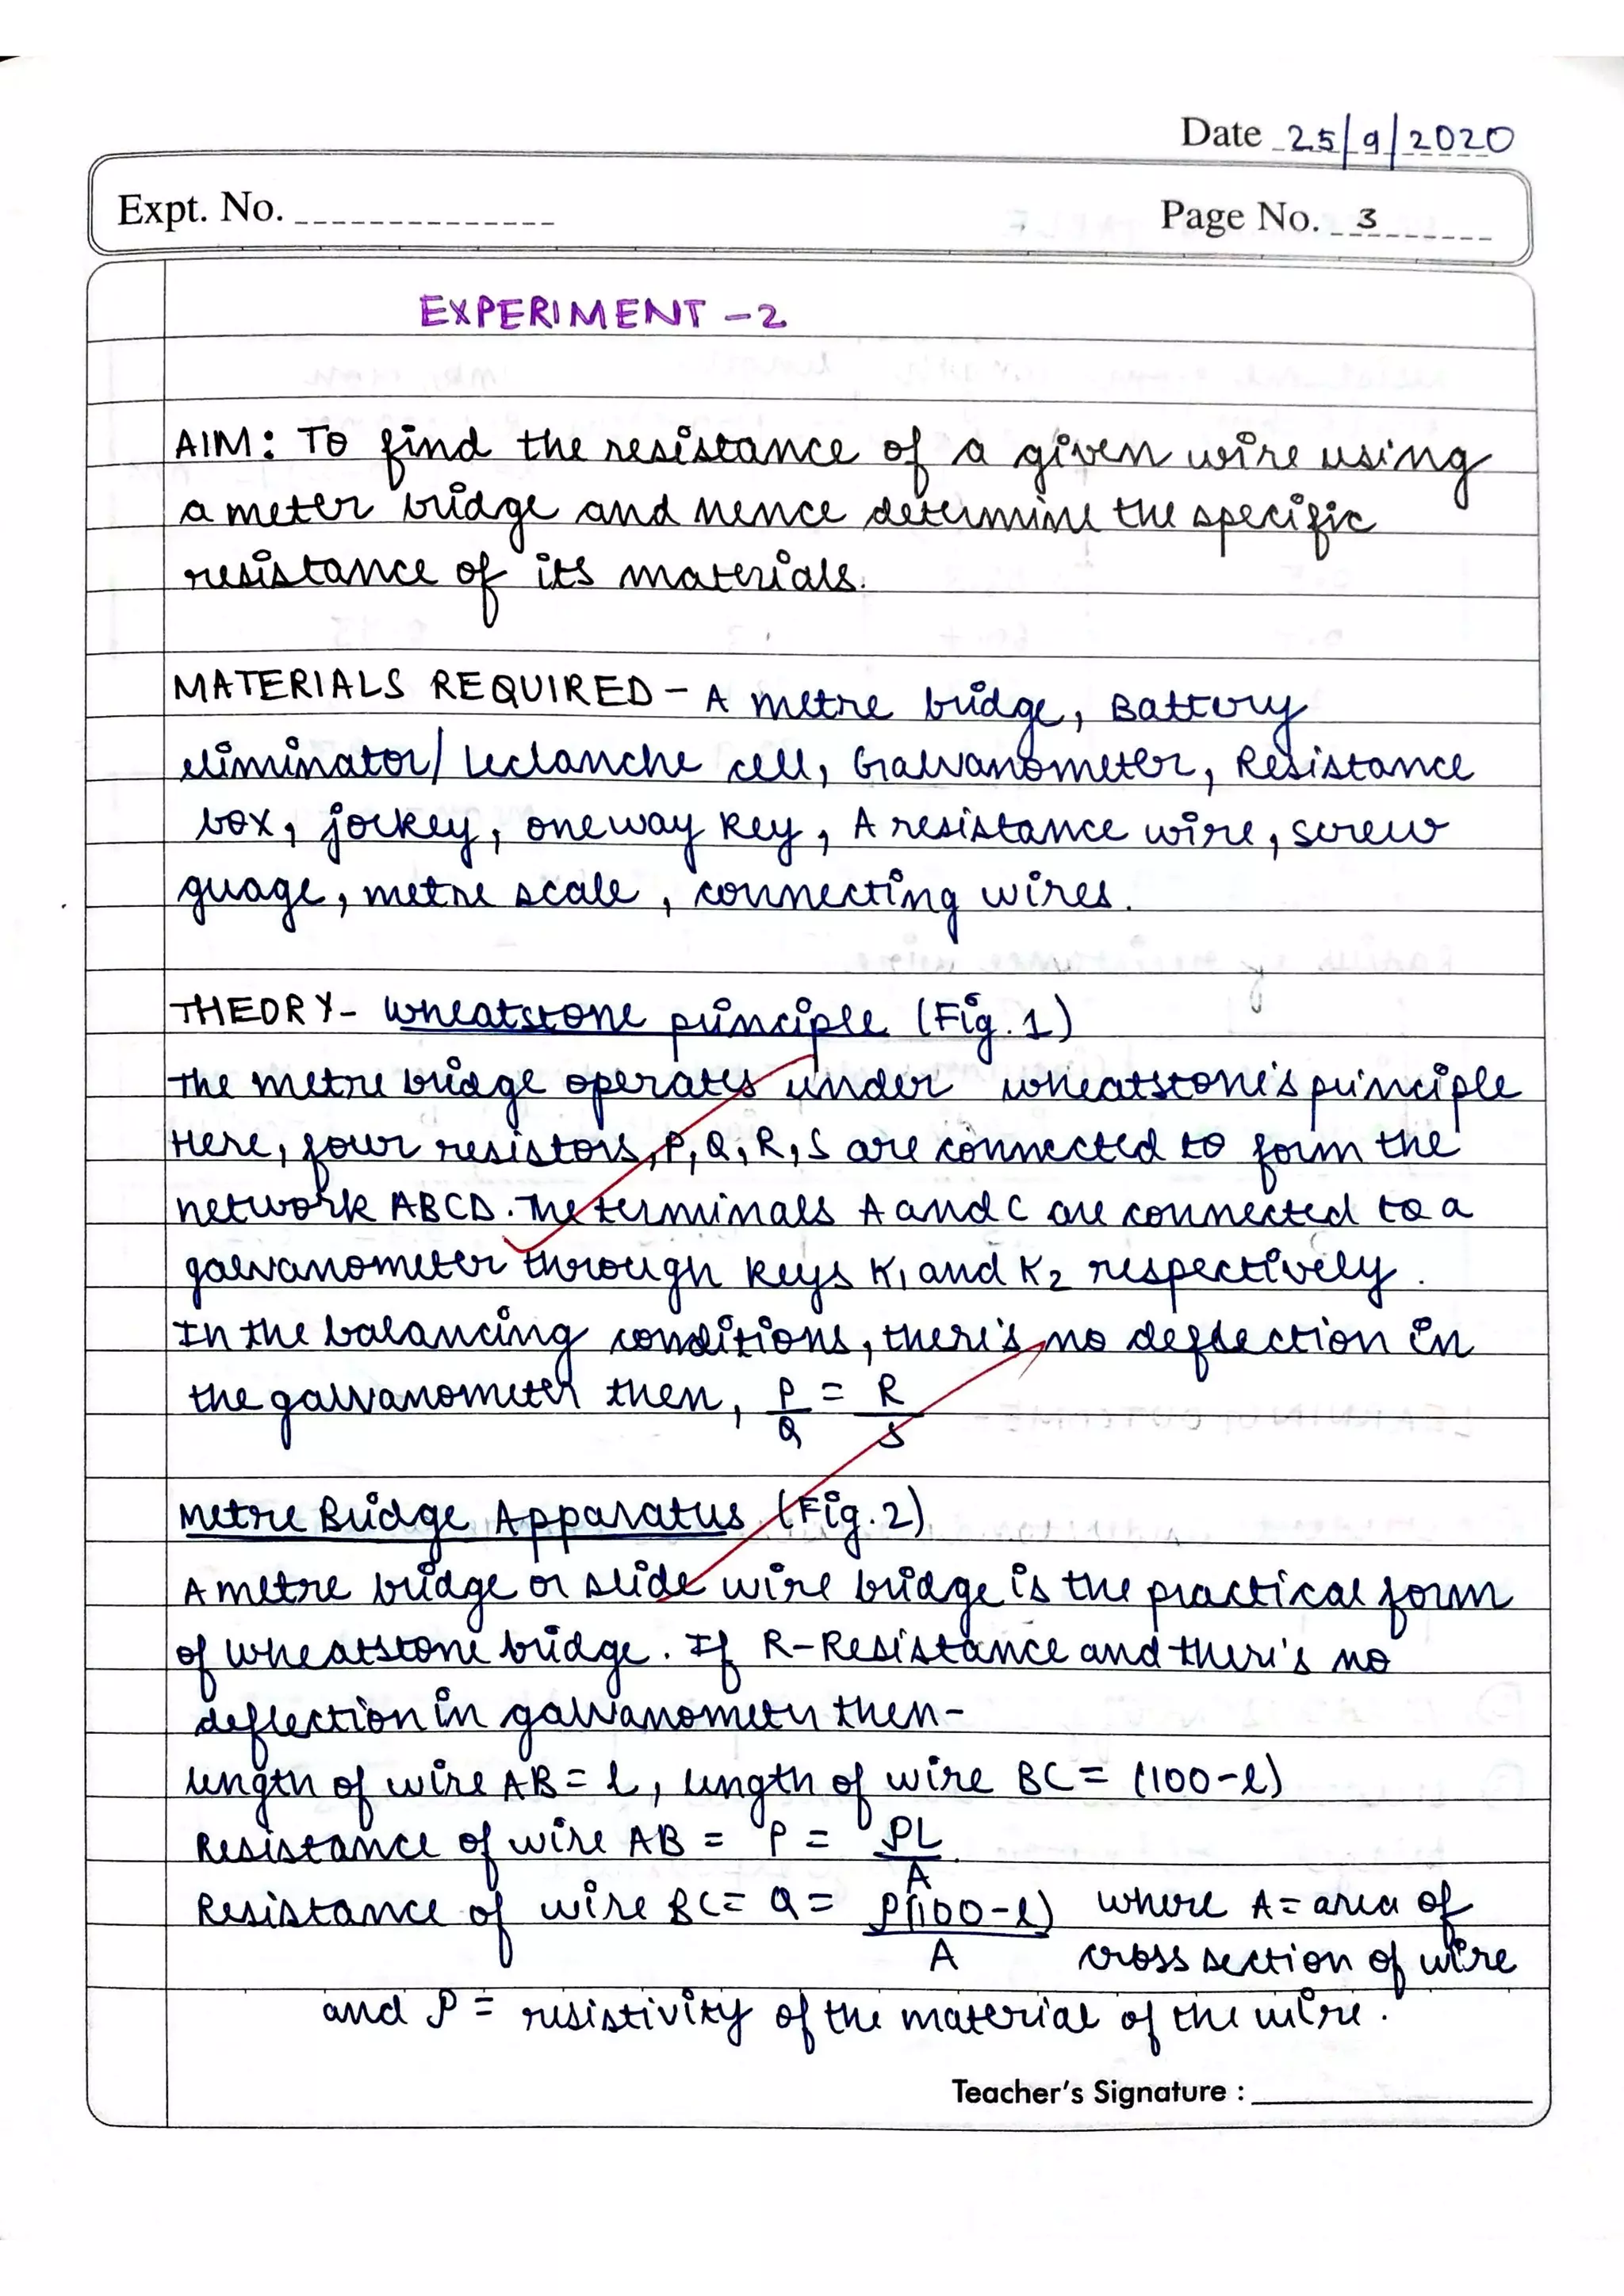 Date 25/9/2020
Expt. No.
Page No. 3
EXPERIMENT -2
AIM: To find the resistance of a given wire using
a meter bridge and hence determine the specific
resistance of its materials.
MATERIALS REQUIRED - A metre bridge, Battery
eliminator/ Leclanche cell, Galvanometer, Resistance
box, jockey, one way key, A resistance wire, screw
guage, metre scale, connecting wires.
THEORY- Wheatstone principle (Fig.1)
The metre bridge operates under wheatstone's principle
Here, four resistors, P, Q, R, S are connected to form the
network ABCD. The terminals A and C are connected to a
galvanometer through keys K1 and K2 respectively.
In the balancing conditions, there's no deflection in
the galvanometer then, P/Q = R/S
Metre Bridge Apparatus (Fig.2)
A metre bridge or slide wire bridge is the practical form
of wheatstone bridge. If R-Resistance and there's no
deflection in galvanometer then-
length of wire AB = l, length of wire BC = (100-l)
Resistance of wire AB = P = ρL/A
Resistance of wire BC = Q = ρ(100-l)/A where A = area of
cross section of wire
and ρ = resistivity of the material of the wire.
Teacher's Signature :